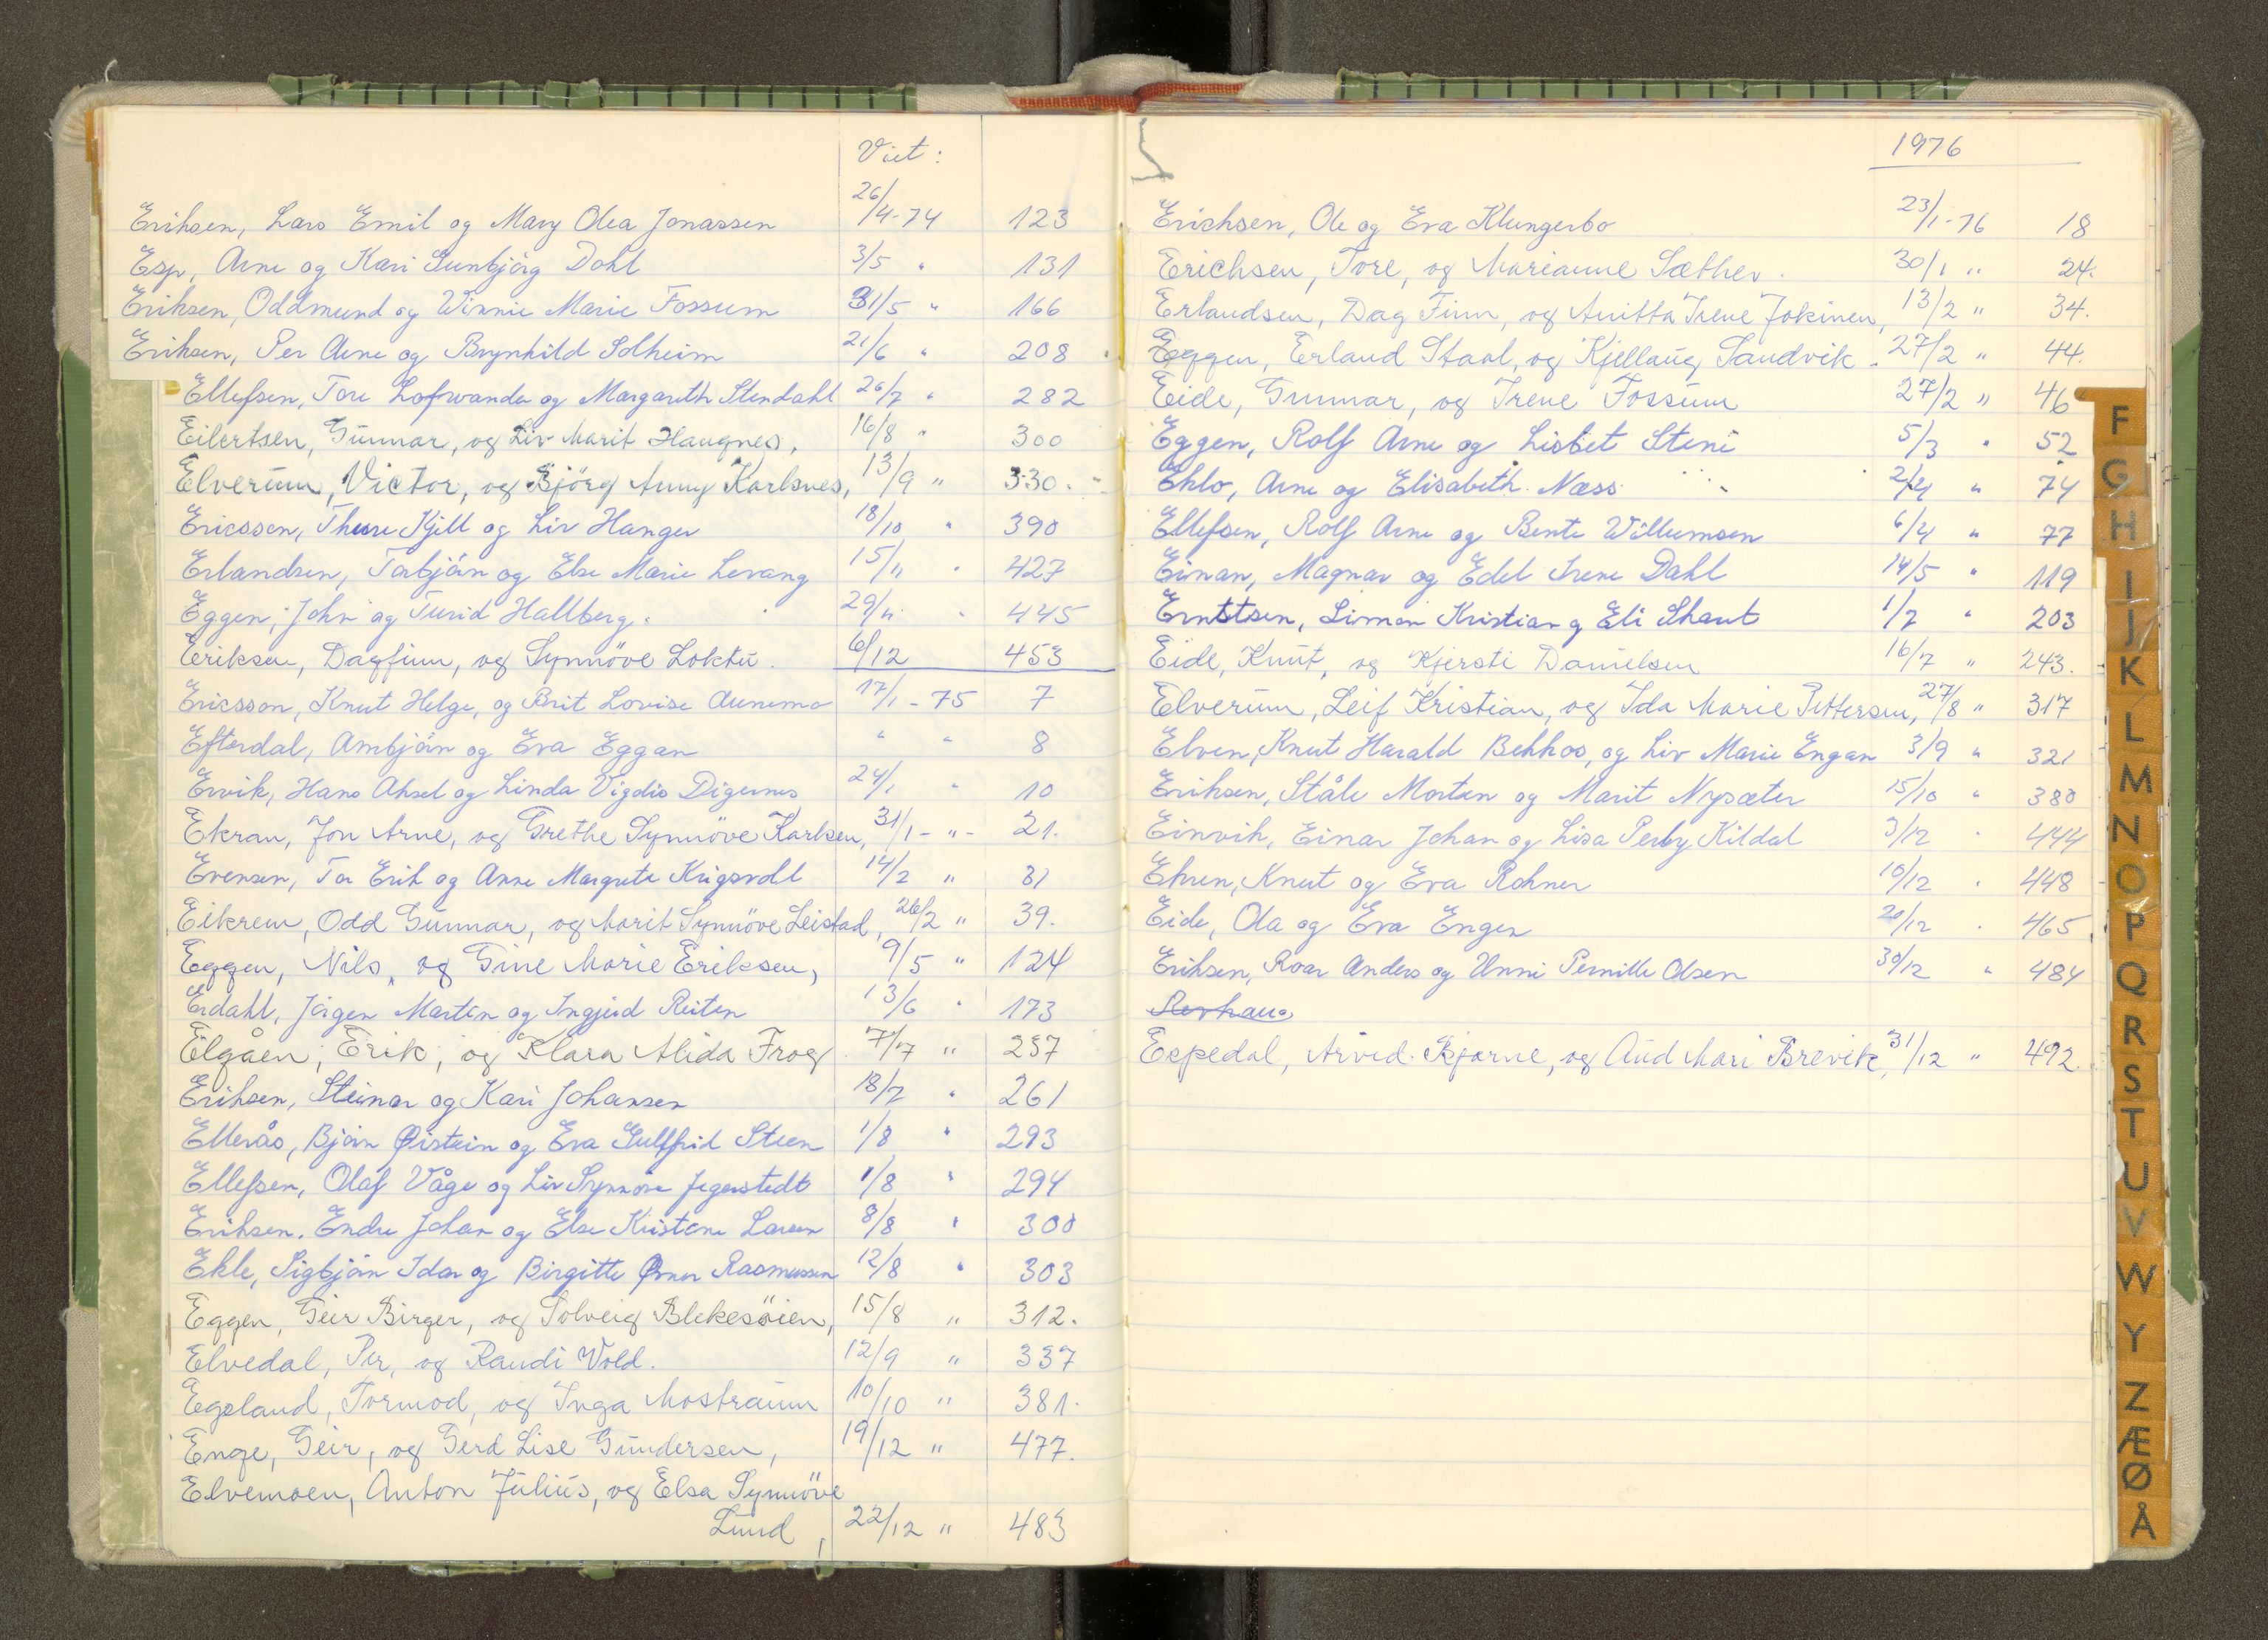 Viet:
Eriksen, Lars Emil og Mary Olea Jonassen 26/4-74 123
Esp, Arne og Kari Sunbjörg Dahl 3/5 " 131
Eriksen, Oddmund og Winnie Marie Fossum 31/5 " 166
Eriksen, Per Arne og Brynhild Solheim 21/6 " 208
Ellefsen, Tore Lofwander og Margareth Stendahl 26/7 " 282
Eilertsen, Gunnar, og Liv Marit Haugnes, 16/8 " 300
Elverum, Victor, og Bjørg Anny Karlsnes, 13/9 " 330.
Ericsson, Thure Kjell og Liv Hanger 18/10 " 390
Erlandsen, Torbjörn og Else Marie Levang 15/11 " 427
Eggen, John og Turid Hallberg. 29/11 " 445
Eriksen, Dagfinn, og Synnöve Loktu. 6/12 453
Ericsson, Knut Helge, og Brit Lovise Aunemo 17/1-75 7
Efterdal, Arnbjörn og Eva Eggan " " 8
Ervik, Hans Aksel og Linda Vigdis Digernes 24/1 " 10
Ekran, Jon Arne, og Grethe Synnöve Karlsen, 31/1-"- 21.
Evensen, Tor Erik og Anne Margrete Krigsvoll 14/2 " 31
Eikrem, Odd Gunnar, og Marit Synnöve Leistad, 26/2 " 39.
Eggen, Nils, og Gine Marie Eriksen, 9/5 " 124
Erdahl, Jörgen Martin og Ingjerd Reiten 13/6 " 173
Elgåen, Erik, og Klara Alida Frog 7/7 " 257
Eriksen, Steinar og Kari Johansen 18/7 " 261
Ellerås, Bjørn Øistein og Eva Gullfrid Steen 1/8 " 293
Ellefsen, Olaf Våge og Liv Synnöve Jegerstedt 1/8 " 294
Eriksen, Endre Johan og Else Kristine Larsen 8/8 " 300
Ekle, Sigbjörn Idar og Birgitte Rasmussen 12/8 " 303
Eggen, Geir Birger, og Solveig Blekesöien, 15/8 " 312.
Elvedal, Per, og Randi Wold. 12/9 " 337
Egeland, Tormod, og Inga Mostraum 10/10 " 381.
Enge, Geir, og Gerd Lise Gundersen, 19/12 " 477.
Elvemoen, Anton Julius, og Elsa Synnöve
Lund, 22/12 " 483
1976
Erichsen, Ole og Eva Klungerbo 23/1-76 18
Erichsen, Tore, og Marianne Sæther. 30/1 " 24.
Erlandsen, Dag Finn, og Anitta Irene Jokinen, 13/2 " 34.
Eggen, Erland Staal, og Kjellaug Sandvik. 27/2 " 44.
Eide, Gunnar, og Irene Fossum 27/2 " 46
Eggen, Rolf Arne og Lisbet Steni 5/3 " 52
Eklo, Arne og Elisabeth Næss 2/4 " 74
Ellefsen, Rolf Arne og Bente Willumsen 6/4 " 77
Einan, Magnar og Edel Irene Dahl 14/5 " 119
Ernstsen, Simon Kristian og Eli Skaut 1/7 " 203
Eide, Knut, og Kjersti Danielsen 16/7 " 243.
Elverum, Leif Kristian, og Ida Marie Pettersen, 27/8 " 317
Elven, Knut Harald Bekkos, og Liv Marie Engan 3/9 " 321
Eriksen, Ståle Morten og Marit Nysæter 15/10 " 380
Einvik, Einar Johan og Lisa Perby Kildal 3/12 " 444
Ekren, Knut og Eva Rohner 10/12 " 448
Eide, Ola og Eva Engen 20/12 " 465
Eriksen, Roar Anders og Unni Pernille Olsen 30/12 " 484
Espedal, Arvid Bjarne, og Aud Mari Brevik, 31/12 " 492.
F
G
H
I
J
K
L
M
N
O
P
Q
R
S
T
U
V
W
Y
Z
Æ
Ø
Å